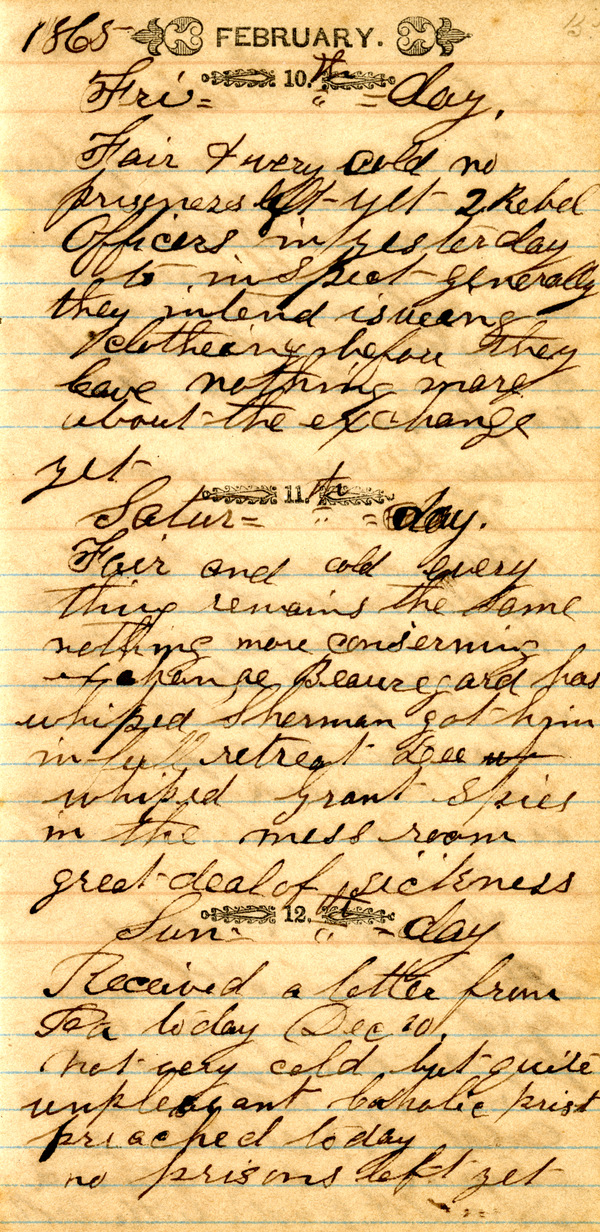 1865 FEBRUARY.
10. th
Fri= " =day.
Fair & very cold no
prisoners left yet 2 Rebel
Officers in yesterday
to inspect generally
they intend isueing
clotheing before they
leave nothing more
about the exchange
yet
11. th
Satur= " =day.
Fair and cold every
thing remains the same
nothing more conserning
exchange Beauregard has
whiped Sherman got him
in full retreat Lee
whiped Grant Spies
in the mess room
great deal of sickness
12. th
Sun- " =day
Received a letter from
Pa today Dec 10.
not very cold but quite
unpleasant Catholic prist
preached today
no prisons left yet